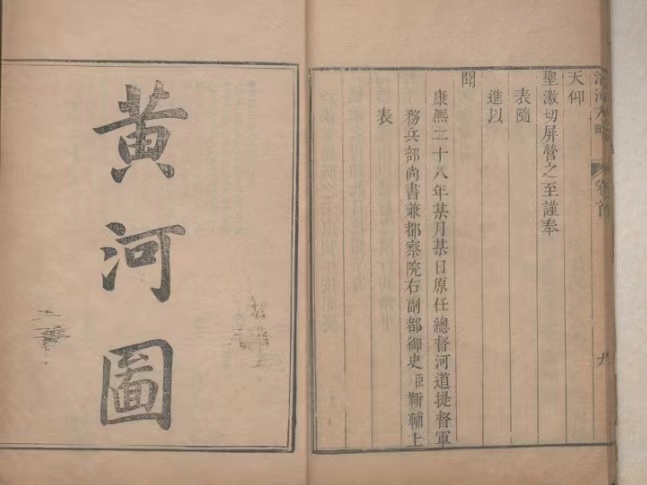 治河方略 卷首 九
天仰
聖激切屏營之至謹奉
表隨
進以
聞
康熙二十八年某月某日原任總督河道提督軍
務兵部尚書兼都察院右副都御史臣靳輔上
表
黄河圖